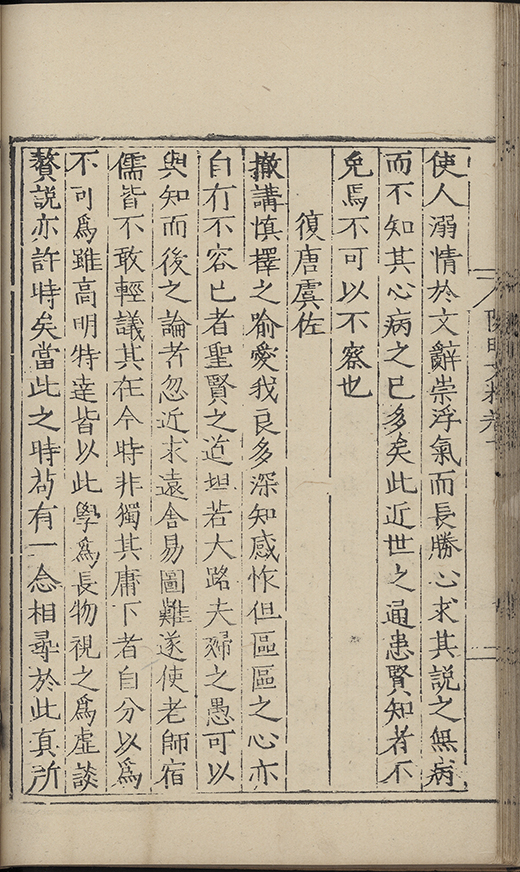 使人溺情於文辭崇浮氣而長勝心求其説之無病
而不知其心病之已多矣此近世之通患賢知者不
免焉不可以不察也
復唐虞佐
撤講慎擇之喻愛我良多深知感怍但區區之心亦
自有不容已者聖賢之道坦若大路夫婦之愚可以
與知而後之論者忽近求遠舍易圖難遂使老師宿
儒皆不敢輕議其在今時非獨其庸下者自分以為
不可爲雖高明特達皆以此學爲長物視之爲虛談
贅説亦許時矣當此之時茍有一念相尋於此真所
陽明文粹卷